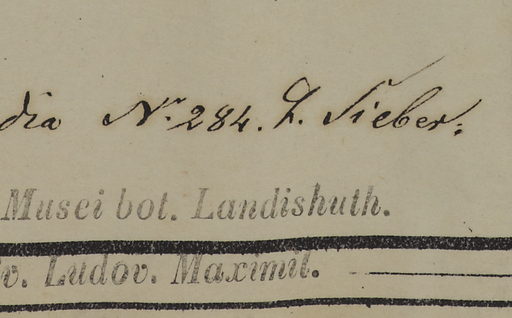 dia Nr. 284. L. Sieber.
Musei bot. Landishuth.
v. Ludov. Maximil.